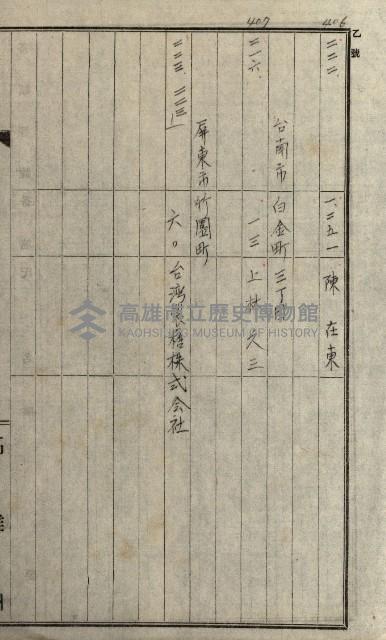 407 406
乙號
二二二、 一、二五一 陳 在東
台南市 白金町 三丁目
二一六、 一三 上村久三
屏東市 竹園町
二二三、二二三ノ一 六〇 台湾製糖株式会社
高雄市立歷史博物館
KAOHSIUNG MUSEUM OF HISTORY